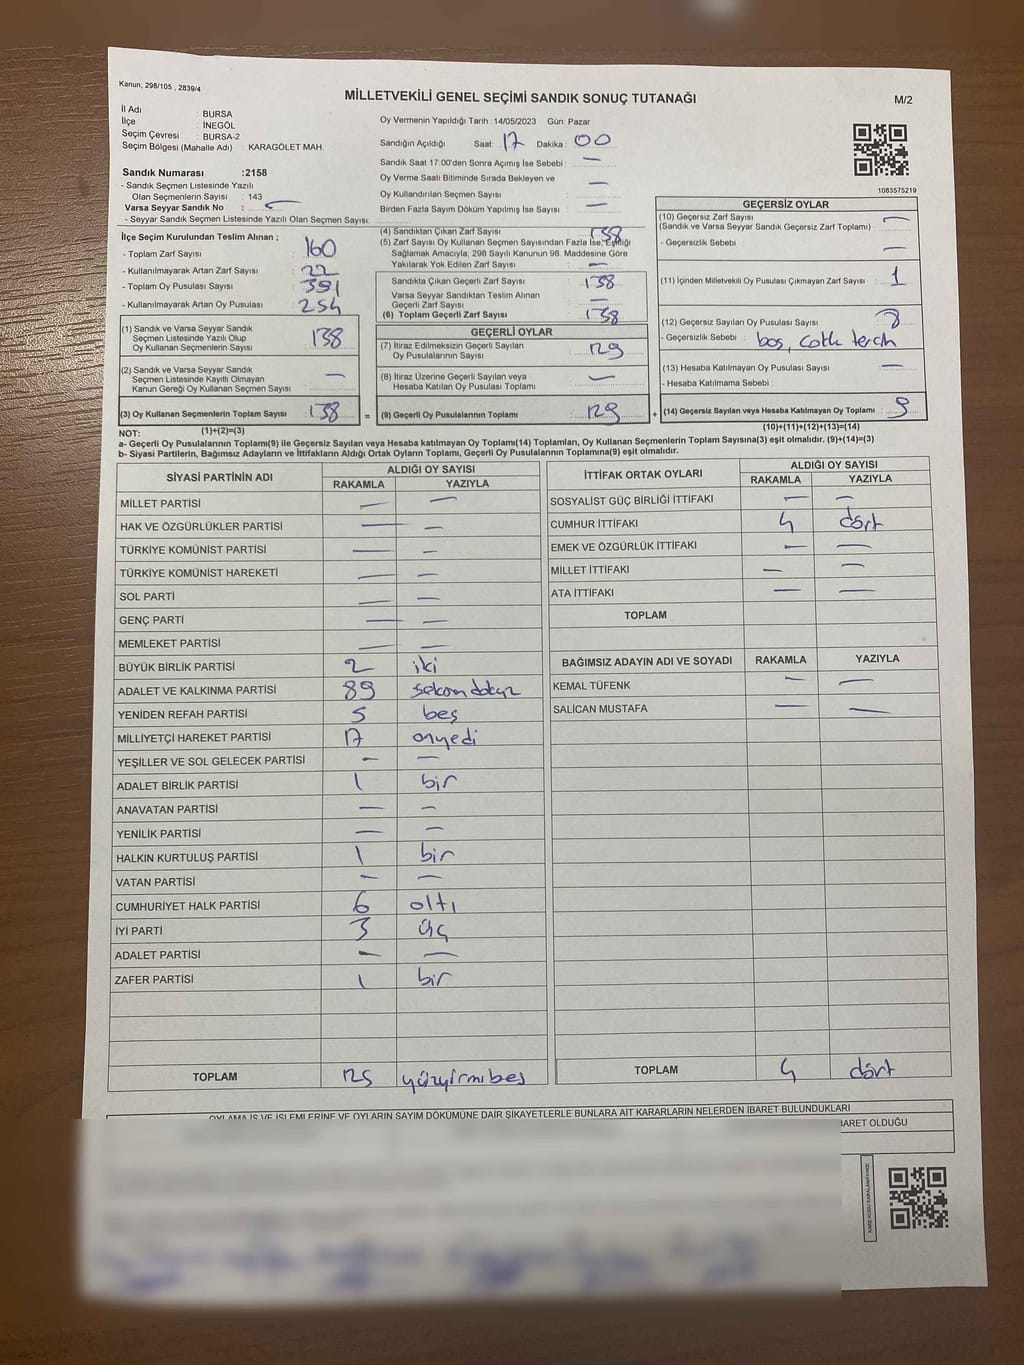 Kanun; 298/105 , 2839/4
MİLLETVEKİLİ GENEL SEÇİMİ SANDIK SONUÇ TUTANAĞI
M/2
İl Adı : BURSA
İlçe : İNEGÖL
Seçim Çevresi : BURSA-2
Seçim Bölgesi (Mahalle Adı) : KARAGÖLET MAH.
Oy Vermenin Yapıldığı Tarih :14/05/2023 Gün: Pazar
Sandığın Açıldığı Saat: 17 Dakika : 00
Sandık Saat 17:00'den Sonra Açılmış İse Sebebi : —
Oy Verme Saati Bitiminde Sırada Bekleyen ve
Oy Kullandırılan Seçmen Sayısı : —
Birden Fazla Sayım Döküm Yapılmış İse Sayısı : —
1083575219
Sandık Numarası :2158
- Sandık Seçmen Listesinde Yazılı
Olan Seçmenlerin Sayısı : 143
Varsa Seyyar Sandık No :
- Seyyar Sandık Seçmen Listesinde Yazılı Olan Seçmen Sayısı:
İlçe Seçim Kurulundan Teslim Alınan ;
- Toplam Zarf Sayısı : 160
- Kullanılmayarak Artan Zarf Sayısı : 22
- Toplam Oy Pusulası Sayısı : 391
- Kullanılmayarak Artan Oy Pusulası : 254
(1) Sandık ve Varsa Seyyar Sandık
Seçmen Listesinde Yazılı Olup
Oy Kullanan Seçmenlerin Sayısı : 138
(2) Sandık ve Varsa Seyyar Sandık
Seçmen Listesinde Kayıtlı Olmayan
Kanun Gereği Oy Kullanan Seçmen Sayısı : —
(3) Oy Kullanan Seçmenlerin Toplam Sayısı : 138
(4) Sandıktan Çıkan Zarf Sayısı : 138
(5) Zarf Sayısı Oy Kullanan Seçmen Sayısından Fazla İse, Eşitliği
Sağlamak Amacıyla, 298 Sayılı Kanunun 98. Maddesine Göre
Yakılarak Yok Edilen Zarf Sayısı : —
Sandıkta Çıkan Geçerli Zarf Sayısı : 138
Varsa Seyyar Sandıktan Teslim Alınan
Geçerli Zarf Sayısı : —
(6) Toplam Geçerli Zarf Sayısı : 138
GEÇERLİ OYLAR
(7) İtiraz Edilmeksizin Geçerli Sayılan
Oy Pusulalarının Sayısı : 129
(8) İtiraz Üzerine Geçerli Sayılan veya
Hesaba Katılan Oy Pusulası Toplamı : —
= (9) Geçerli Oy Pusulalarının Toplamı : 129
GEÇERSİZ OYLAR
(10) Geçersiz Zarf Sayısı : —
(Sandık ve Varsa Seyyar Sandık Geçersiz Zarf Toplamı)
- Geçersizlik Sebebi : —
(11) İçinden Milletvekili Oy Pusulası Çıkmayan Zarf Sayısı : 1
(12) Geçersiz Sayılan Oy Pusulası Sayısı : 8
- Geçersizlik Sebebi : boş, çoklu tercih
(13) Hesaba Katılmayan Oy Pusulası Sayısı : —
- Hesaba Katılmama Sebebi :
+ (14) Geçersiz Sayılan veya Hesaba Katılmayan Oy Toplamı : 9
NOT: (1)+(2)=(3)
(10)+(11)+(12)+(13)=(14)
a- Geçerli Oy Pusulalarının Toplamı(9) ile Geçersiz Sayılan veya Hesaba katılmayan Oy Toplamı(14) Toplamları, Oy Kullanan Seçmenlerin Toplam Sayısına(3) eşit olmalıdır. (9)+(14)=(3)
b- Siyasi Partilerin, Bağımsız Adayların ve İttifakların Aldığı Ortak Oyların Toplamı, Geçerli Oy Pusulalarının Toplamına(9) eşit olmalıdır.
SİYASİ PARTİNİN ADI
ALDIĞI OY SAYISI
RAKAMLA YAZIYLA
MİLLET PARTİSİ — —
HAK VE ÖZGÜRLÜKLER PARTİSİ — —
TÜRKİYE KOMÜNİST PARTİSİ — —
TÜRKİYE KOMÜNİST HAREKETİ — —
SOL PARTİ — —
GENÇ PARTİ — —
MEMLEKET PARTİSİ — —
BÜYÜK BİRLİK PARTİSİ 2 iki
ADALET VE KALKINMA PARTİSİ 89 seksen dokuz
YENİDEN REFAH PARTİSİ 5 beş
MİLLİYETÇİ HAREKET PARTİSİ 17 onyedi
YEŞİLLER VE SOL GELECEK PARTİSİ — —
ADALET BİRLİK PARTİSİ 1 bir
ANAVATAN PARTİSİ — —
YENİLİK PARTİSİ — —
HALKIN KURTULUŞ PARTİSİ 1 bir
VATAN PARTİSİ — —
CUMHURİYET HALK PARTİSİ 6 altı
İYİ PARTİ 3 üç
ADALET PARTİSİ — —
ZAFER PARTİSİ 1 bir
TOPLAM 125 yüzyirmibeş
İTTİFAK ORTAK OYLARI
ALDIĞI OY SAYISI
RAKAMLA YAZIYLA
SOSYALİST GÜÇ BİRLİĞİ İTTİFAKI — —
CUMHUR İTTİFAKI 4 dört
EMEK VE ÖZGÜRLÜK İTTİFAKI — —
MİLLET İTTİFAKI — —
ATA İTTİFAKI — —
TOPLAM
BAĞIMSIZ ADAYIN ADI VE SOYADI RAKAMLA YAZIYLA
KEMAL TÜFENK — —
SALİCAN MUSTAFA — —
TOPLAM 4 dört
OYLAMA İŞ VE İŞLEMLERİNE VE OYLARIN SAYIM DÖKÜMÜNE DAİR ŞİKAYETLERLE BUNLARA AİT KARARLARIN NELERDEN İBARET BULUNDUKLARI
İBARET OLDUĞU
KARE KODU KARALAMAYINIZ